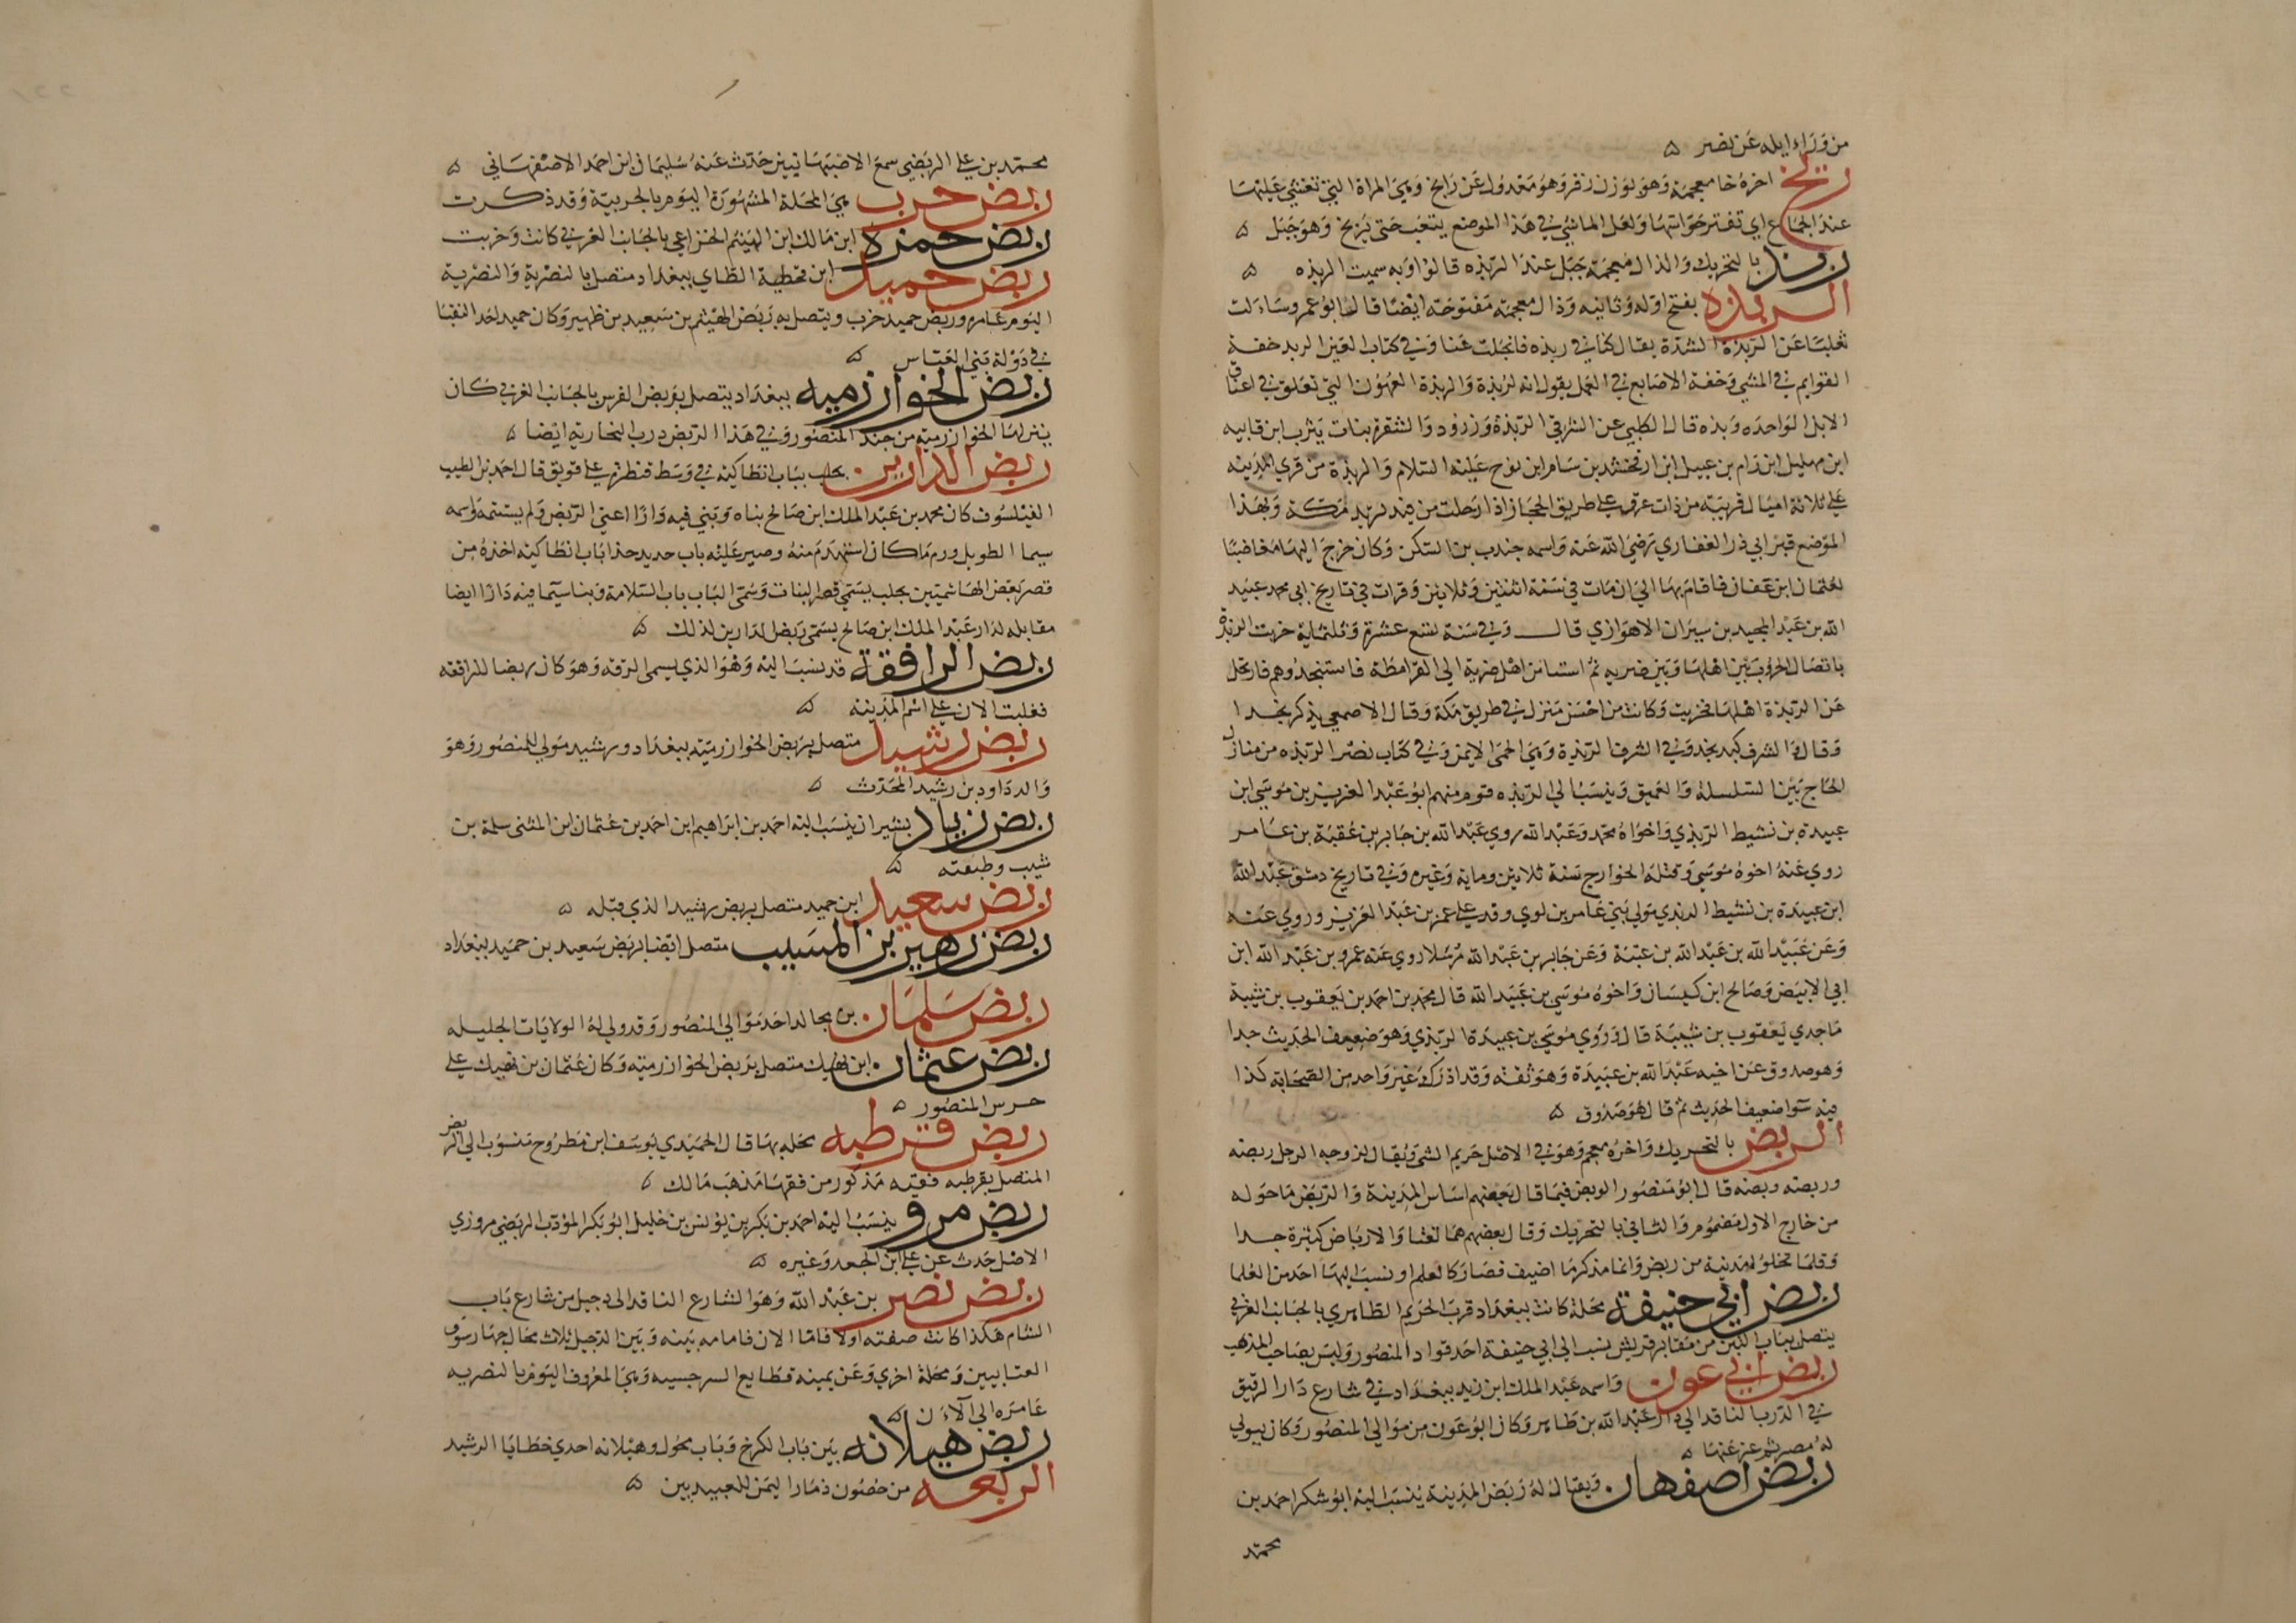 من وراء ايله عن نصر ه
ربخ اخره خا معجمة وهو بوزن زفر وهو معدول عن رابخ وهي المراة التي تغشي عليها
عند الجماع اي تفتر حواسها ولعل الماشي في هذا الموضع يتعب حتى يربخ وهو جبل ه
ربذ بالتحريك والذال معجمة جبل عند الربذه قالوا وبه سميت الربذه ه
الربذه بفتح اوله وثانيه وذال معجمة مفتوحة ايضا قال ابو عمرو سالت
ثعلبا عن الربذة الشدة يقال كنا في ربذه فانجلت عنا وفي كتاب العين الربد خفة
القوايم في المشي وخفة الاصابع في العمل يقول انه لربذة والربذة العهون التي تعلق في اعناق
الابل الواحده وبذه قال الكلبي عن الشرقي الربذة وزرود والشقرة بنات يثرب ابن قابيه
ابن مهليل ابن رام بن عبيل ابن ارفخشد بن سام ابن نوح عليه السلام والربذة من قري المدينه
علي ثلاثة اميال قريبة من ذات عرق علي طريق الحجاز اذا رحلت من فيد تريد مكة وبهذا
الموضع قبر ابي ذر الغفاري رضي الله عنه واسمه جندب بن السكن وكان خرج اليها مغاضبا
لعثمان ابن عفان فاقام بها الي ان مات في سنة اثنتين وثلاثين وقرات في تاريخ ابي محمد عبيد
الله بن عبد المجيد بن سيران الاهوازي قال وفي سنة تسع عشرة وثلثماية خربت الربذة
باتصال الحروب بين اهلها وبين ضريه ثم استامن اهل ضرية الي القرامطة فاستنجدوهم فارتحل
عن الربذة اهلها فخربت وكانت من احسن منزل في طريق مكة وقال الاصمعي يذكر نجدا
وقال الشرف كبد نجد وفي الشرف الربذة وهي الحمى الايمن وفي كتاب نصر الربذه من منازل
الحاج بين السلسلة والعميق وينسب الي الربذه قوم منهم ابو عبد العزيز بن موسي ابن
عبيدة بن نشيط الربذي واخواه محمد وعبد الله روي عبد الله بن جابر بن عقبة بن عامر
روي عنه اخوه موسي وقتله الخوارج سنة ثلاثين وماية وغيره وفي تاريخ دمشق عبد الله
ابن عبيدة بن نشيط الربذي مولي بني عامر بن لوي وفد علي عمر بن عبد العزيز وروي عنه
وعن عبيد الله بن عبد الله بن عتبة وعن جابر بن عبد الله مرسلا روي عنه عمرو بن عبد الله ابن
ابي الابيض وصالح ابن كيسان واخوه موسي بن عبيد الله قال محمد بن احمد بن يعقوب بن شيبة
ما جدي يعقوب بن شيبة قال وروي موسي بن عبيدة الربذي وهو ضعيف الحديث جدا
وهو صدوق عن اخيه عبد الله بن عبيدة وهو ثقة وقد ادرك غير واحد من الصحابة كذا
فيه سوا ضعيف الحديث ثم قال هو صدوق ه
الربض بالتحريك واخره معجم وهو في الاصل حريم الشي ويقال لزوجه الرجل ربضه
وربضه وبضه قال ابو منصور الوبض فيما قال بعضهم اساس المدينة والربض ما حوله
من خارج الاول مضموم والثاني بالتحريك وقال بعضهم هما لغتا والارباض كثيرة جدا
وقلما تخلو مدينة من ربض وانما نذكر ما اضيف فصار كالعلم او نسب اليها احد من العلما
ربض ابي حنيفة محلة كانت ببغداد قرب الحريم الطاهري بالجانب الغربي
يتصل بباب التين من مقابر قريش نسب الي ابي حنيفة احد قواد المنصور وليس بصاحب المذهب
ربض ابي عون واسمه عبد الملك ابن زيد ببغداد في شارع دار الرقيق
في الدرب النافد الي دار عبد الله بن طاهر وكان ابو عون من موالي المنصور وكان يتولي
له مصر ثم عزله عنها ه
ربض اصفهان ويقال له ربض المدينة ينسب اليه ابو شكر احمد بن
محمد
محمد بن علي الربضي سمع الاصبهانيين حدث عنه سليمان ابن احمد الاصفهاني ه
ربض حرب هي المحلة المشهورة اليوم بالحربية وقد ذكرت
ربض حمزه ابن مالك ابن الهيثم الخزاعي بالجانب الغربي كانت وخربت
ربض حميد ابن قحطبة الطاي ببغداد متصل بالنصرية والنصرية
اليوم عامره وربض حميد خرب ويتصل به ربض الهيثم بن سعيد بن ظهير وكان حميد احد النقبا
في دولة بني العباس ه
ربض الخوارزميه ببغداد يتصل بربض الفرس بالجانب الغربي كان
ينزلها الخوارزمية من جند المنصور وفي هذا الربض درب النجارية ايضا ه
ربض الدارين بحلب بباب انطاكية في وسط قنطرة علي قويق قال احمد بن الطيب
الفيلسوف كان محمد بن عبد الملك ابن صالح بناه وبني فيه دارا اعني الربض ولم يستتمه واسمه
سيما الطويل ورم ما كان استهدم منه وصير عليه باب حديد حذا باب انطاكيه اخذه من
قصر بعض الهاشميين بحلب يسمي قصر البنات وسمى الباب باب السلامة وبنا سيما فيه دارا ايضا
مقابله لدار عبد الملك ابن صالح يسمى ربض لدارين لذلك ه
ربض الرافقة قد نسب اليه وهو الذي يسمى الرقه وهو كان ربضا للرافقه
فغلبت الان علي اسم المدينه ه
ربض رشيد متصل بربض الخوارزمية ببغداد ورشيد مولي للمنصور وهو
والد داود بن رشيد المحدث ه
ربض زياد بشيراز ينسب اليه احمد بن ابراهيم ابن احمد بن عثمان ابن المثنى سلمة بن
شبيب وطبقته ه
ربض سعيد ابن حميد متصل بربض رشيد الذي قبله ه
ربض زهير بن المسيب متصل ايضا بربض سعيد بن حميد ببغداد
ربض سلمان بن مجالد احد موالي المنصور وقد ولي له الولايات الجليله
ربض عثمان ابن نهيك متصل بربض الخوارزميه وكان عثمان بن نهيك علي
حرس المنصور ه
ربض قرطبه محله بها قال الحميدي يوسف ابن مطروح منسوب الي الربض
المتصل بقرطبه فقيه مذكور من فقها مذهب مالك ه
ربض مرو ينسب اليه احمد بن بكر بن يونس بن خليل ابو بكر المؤدب الربضي مروزي
الاصل حدث عن علي ابن الجعد وغيره ه
ربض نصر بن عبد الله وهو الشارع النافد الي دجيل من شارع باب
الشام هكذا كانت صفته اولا فاما الان فامامه بينه وبين الدجيل ثلاث محال جهارسوق
العتابيين ومحلة اخري وعن يمينه قطايع السرجسيه وهي المعروف اليوم بالنصريه
عامره الي الآن ه
ربض هيلانه بين باب الكرخ وباب محول وهيلانه احدي حظايا الرشيد
الربعه من حصون ذمار اليمن للعبيديين ه